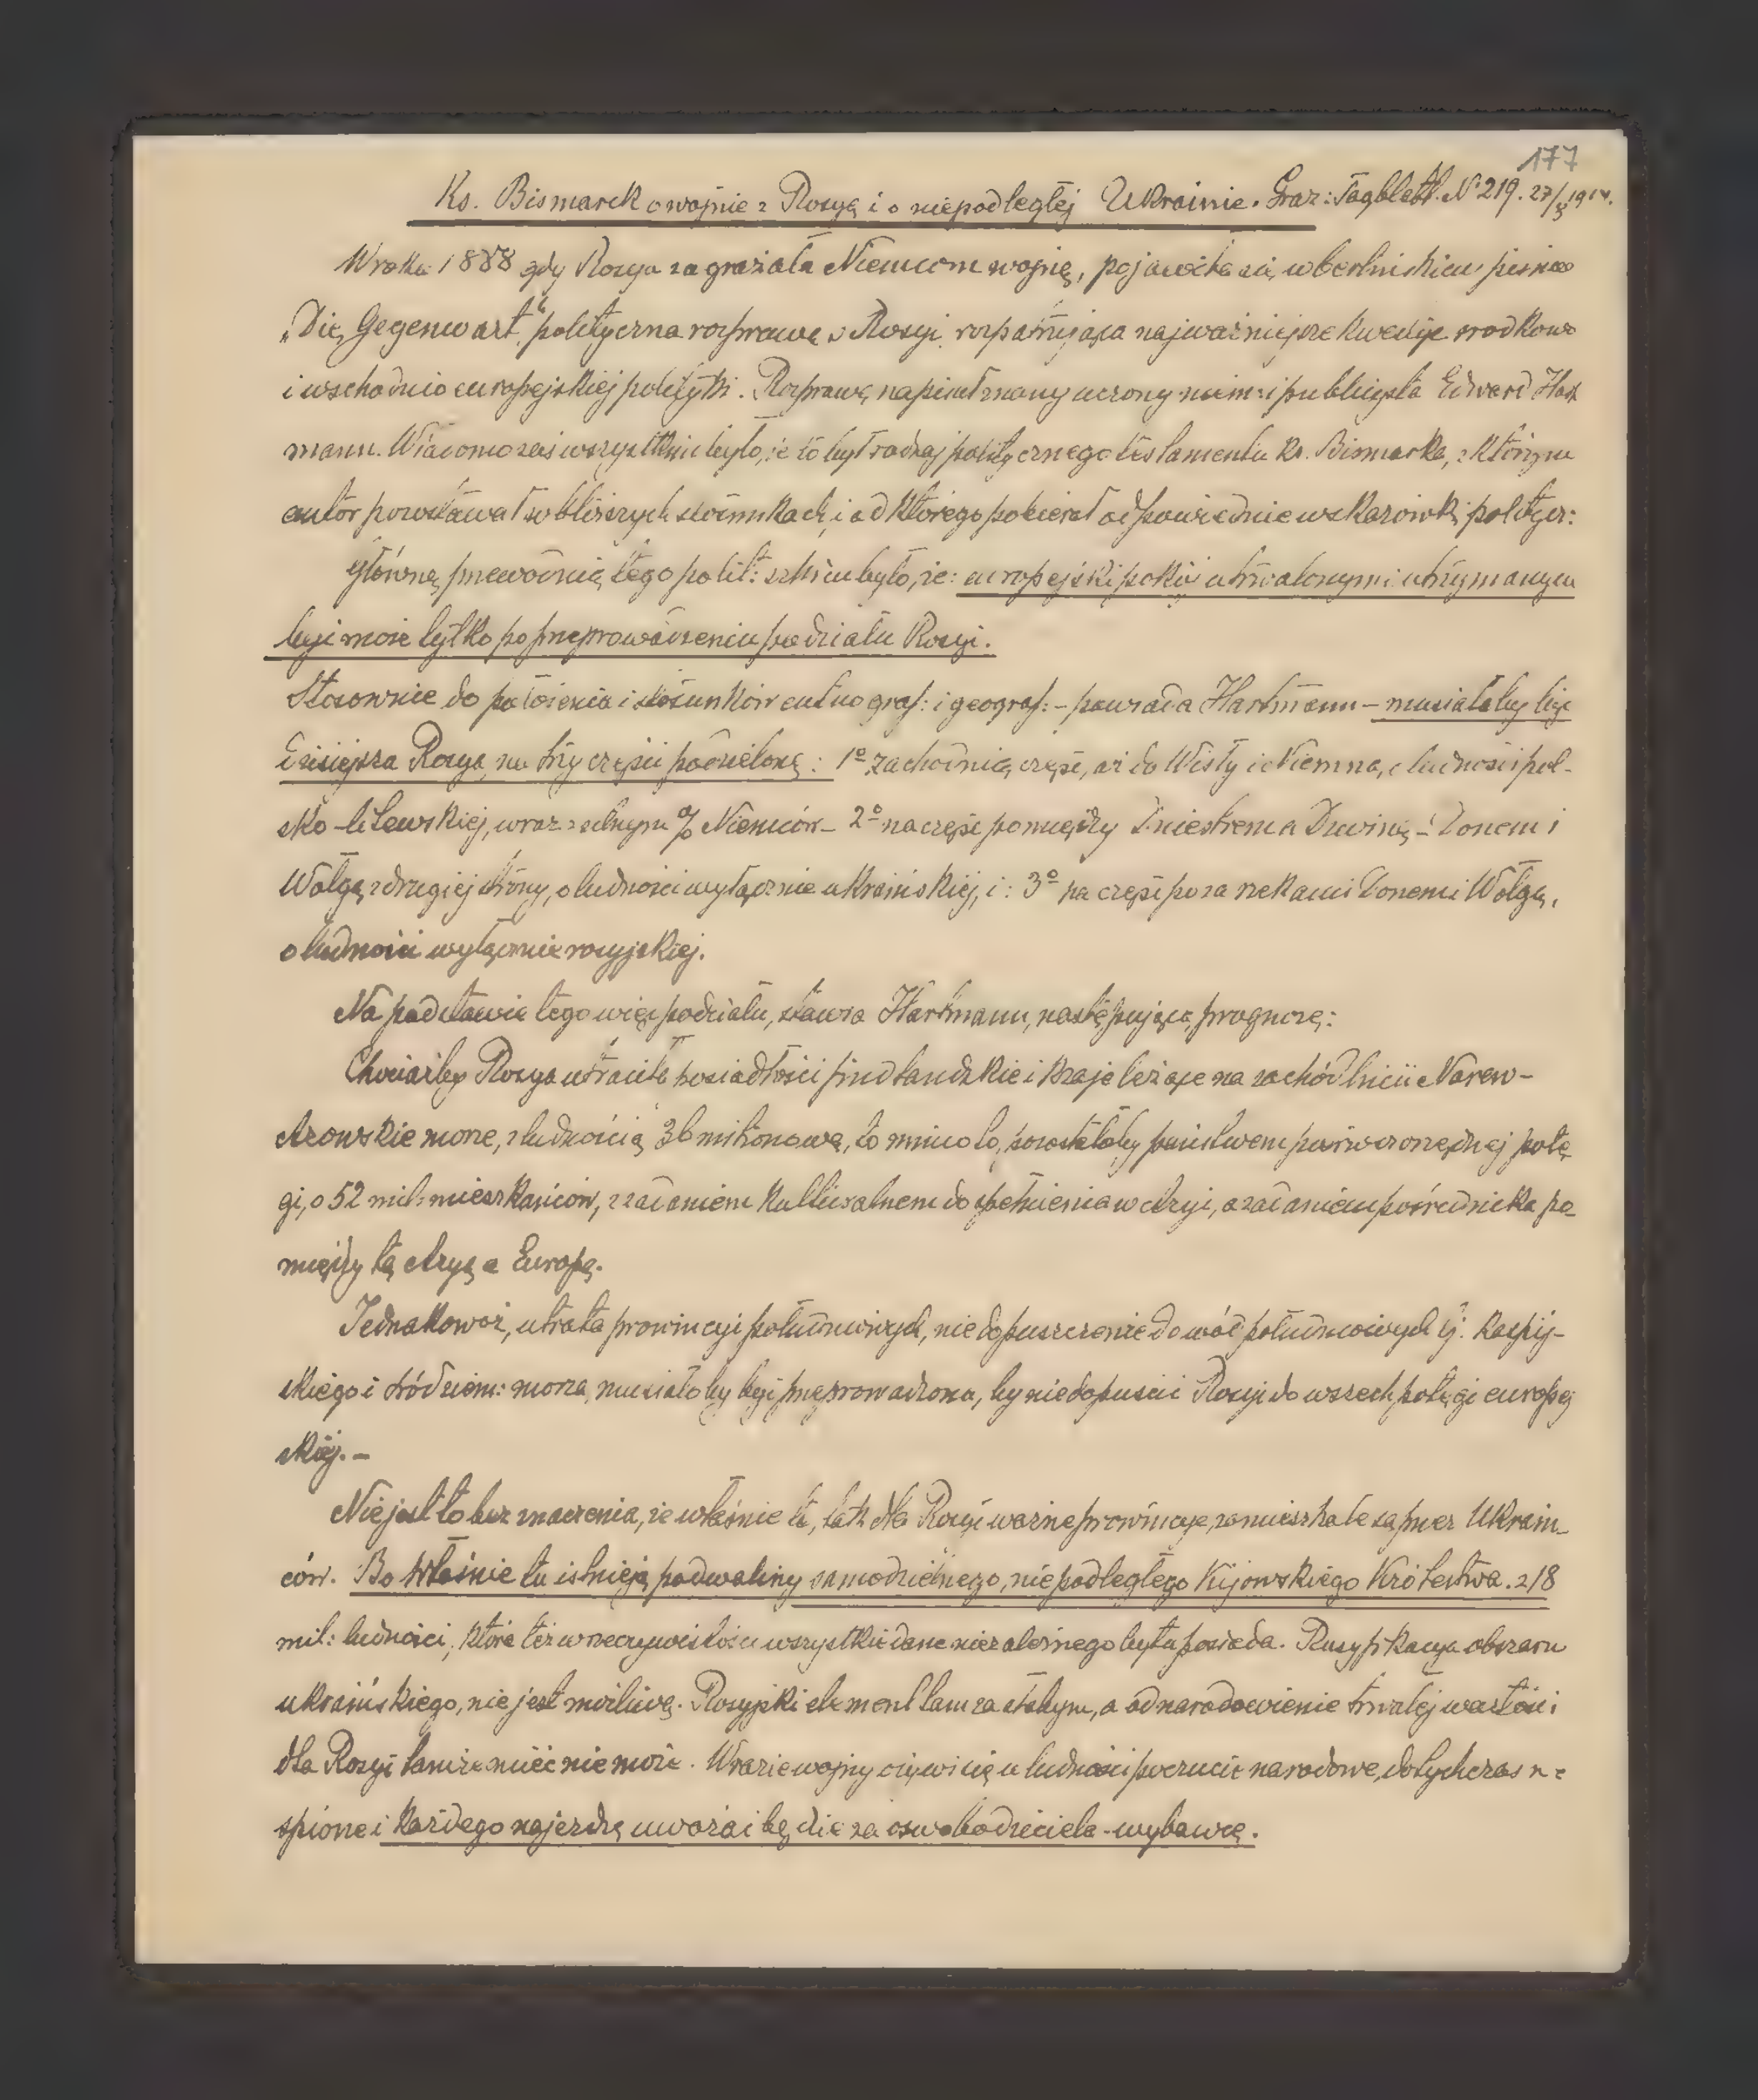 177
Ks. Bismarck o wojnie z Rosyą i o niepodległej Ukrainie. Graz: Tagblatt. N° 219. 27/8 1914.
W roku 1888 gdy Rosya zagrażała Niemcom wojną, pojawiła się w berlińskiem piśmie
„Die Gegenwart" polityczna rozprawa o Rosyi, rozpatrująca najważniejsze kwestye środkowo
i wschodnio europejskiej polityki. Rozprawę napisał znany uczony niem: i publicysta Edward Hart
mann. Wiadomo zaś wszystkim było, że to był rodzaj politycznego testamentu Ks. Bismarka, z którym
autor pozostawał w bliższych stosunkach, i od którego pobierał odpowiednie wskazówki polityczn:
główną przewodnią tego polit: szkicu było, że: europejski pokój utrwalonym i utrzymanym
być może tylko po przeprowadzeniu podziału Rosyi.
Stosownie do położenia i stosunków etnograf: i geograf: – powiada Hartmann – musiałaby być
dzisiejsza Rosya, na trzy części podzieloną: 1° zachodnią część, aż do Wisły i Niemna, o ludności pol-
sko-litewskiej, wraz z silnym % Niemców – 2° na część pomiędzy Dniestrem a Dźwiną – Donem i
Wołgą z drugiej strony, o ludności wyłącznie ukraińskiej, i: 3° na część poza rzekami Donem i Wołgą,
o ludności wyłącznie rosyjskiej.
Na podstawie tego więc podziału, stawia Hartmann, następującą prognozę:
Chociażby Rosya utraciła posiadłości findlandzkie i kraje leżące na zachód linii Narew –
Azowskie morze, z ludnością 36 milionową, to mimo to, pozostałoby państwem pierwszorzędnej potę
gi, o 52 mil: mieszkańców, z zadaniem kulturalnem do spełnienia w Azyi, a zadaniem pośrednika po-
między tą Azyą a Europą.
Jednakowoż, utrata prowincyi południowych, niedopuszczenie do wód południowych tj. Kaspij-
skiego i śródziem: morza, musiałoby być przeprowadzona, by nie dopuścić Rosyi do wszechpotęgi europej
skiej. –
Nie jest to bez znaczenia, że właśnie te, tak dla Rosyi ważne prowincye, zamieszkałe są przez Ukraiń-
ców. Bo właśnie tu istnieją podwaliny samodzielnego, niepodległego Kijowskiego Królestwa. z 18
mil: ludności, które też w rzeczywistości wszystkie dane niezależnego bytu posiada. Rusyfikacya obszaru
ukraińskiego, nie jest możliwą. Rosyjski element tam za słabym, a odnarodowienie trwałej wartości
dla Rosyi tamże mieć nie może. W razie wojny ożywi się u ludności poczucie narodowe, dotychczas u-
śpione i każdego najezdcę uważać będzie za oswobodziciela - wybawcę.